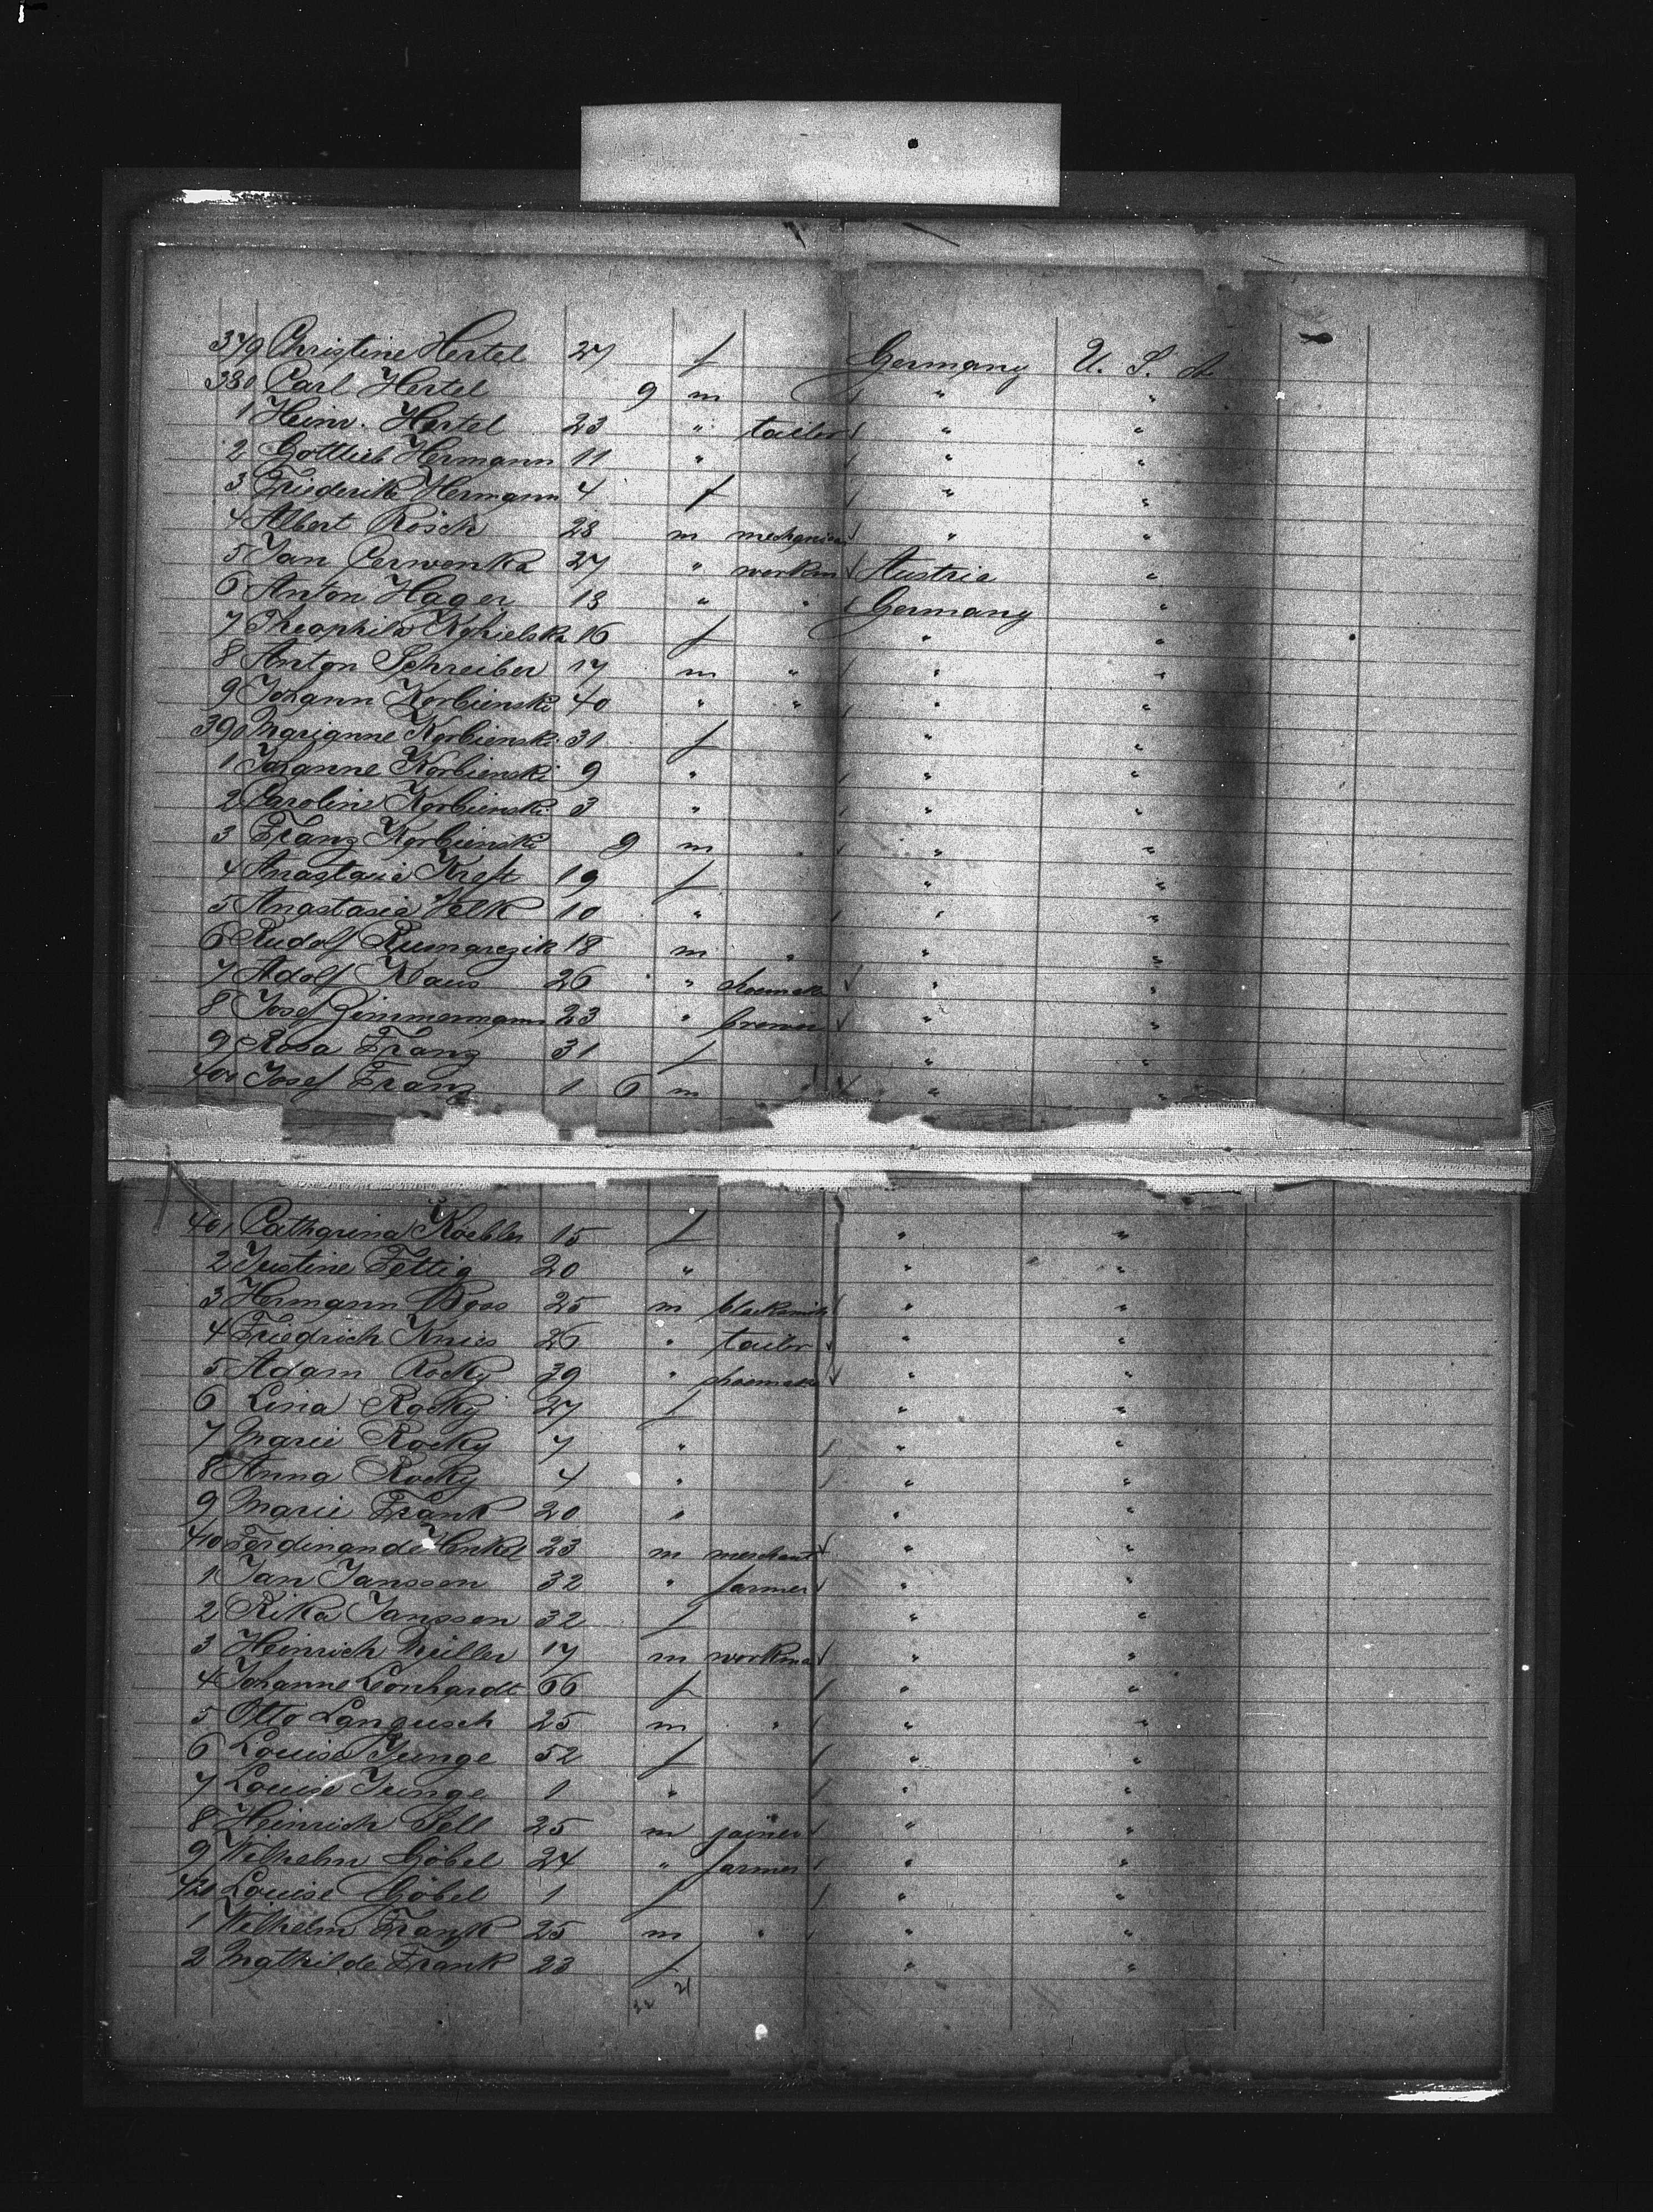 379 Christine Hertel 27 f Germany U. S. A
380 Carl Hertel 9 m " "
1 Heinr. Hertel 23 " tailor " "
2 Gottlieb Hermann 11 " " "
3 Friederike Hermann 4 f " "
4 Albert Rösch 28 m mechanican " "
5 Jan Cerwenka 27 " workm Austria "
6 Anton Hager 18 " " Germany "
7 Theophila 16 f " "
8 Anton Schreiber 17 m " " "
9 Johann Korbienski 40 " " " "
390 Marianne Korbienski 31 f " "
1 Johanne Korbienski 9 " " "
2 Carolin Korbienski 3 " " "
3 Franz Korbienski 9 m " "
4 Anastasia Kreft 19 f " "
5 Anastasia Velk 10 " " "
6 Rudolf 18 m " " "
7 Adolf Klaus 26 " shoemak " "
8 Josef Zimmermann 23 " brewer " "
9 Rosa Franz 31 f " "
400 Josef Franz 1 6 m " "
401 Catharina Koebler 15 f " "
2 Justine Fettig 20 " " "
3 Hermann Roos 25 m blacksmith " "
4 Friedrich Knies 26 " tailor " "
5 Adam Rocky 39 " shoemake " "
6 Lina Rocky 27 f " "
7 Marie Rocky 7 " " "
8 Anna Rocky 4 " " "
9 Marie Frank 20 " " "
410 Ferdinand Henkel 23 m merchant " "
1 Jan Janssen 32 " farmer " "
2 Rika Janssen 32 f " "
3 Heinrich Müller 17 m workma " "
4 Johanne Leonhardt 66 f " "
5 Otto Langusch 25 m " " "
6 Louise Junge 52 f " "
7 Louise Junge 1 " " "
8 Heinrich Sell 25 m joiner " "
9 Wilhelm Göbel 24 " farmer " "
420 Louise Göbel 1 f " "
1 Wilhelm Frank 25 m " " "
2 Mathilde Frank 23 f " "
21